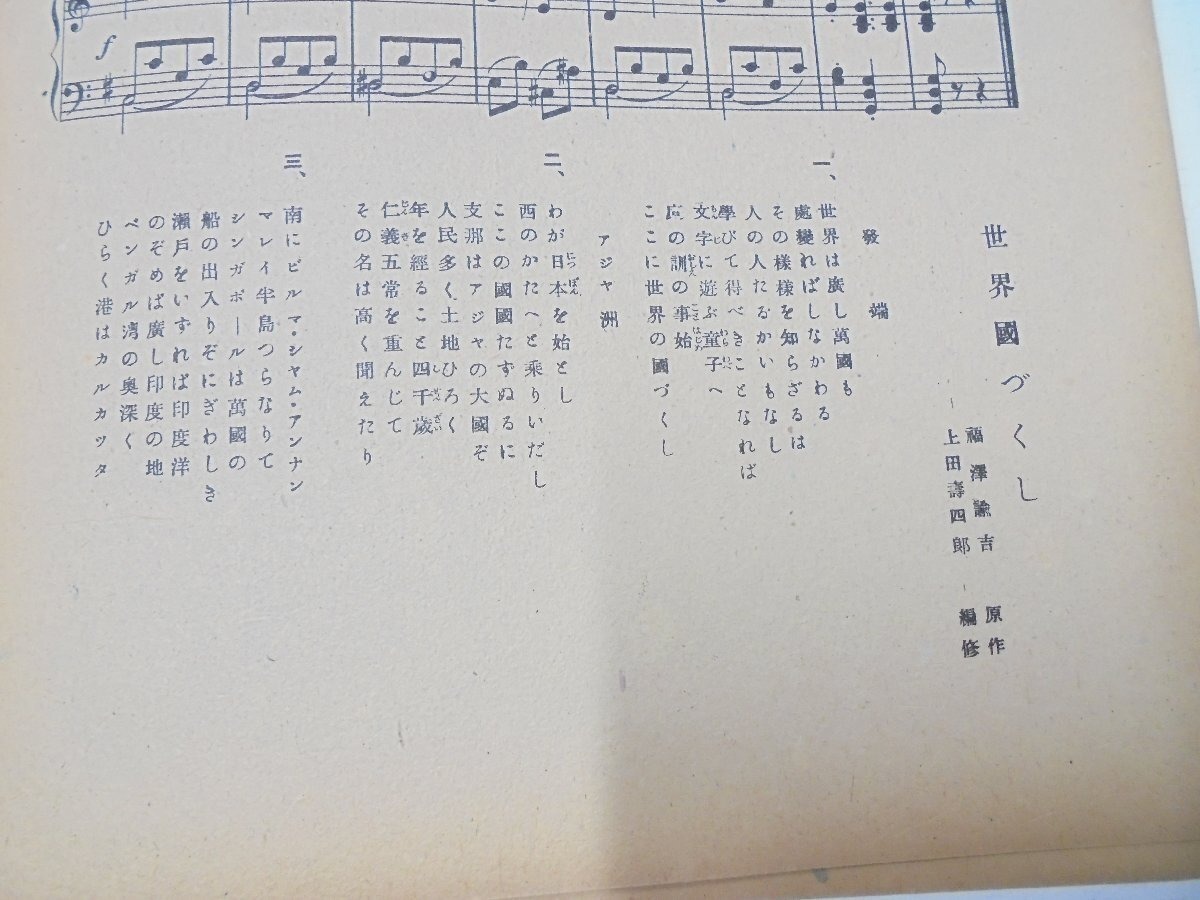 f
世界國づくし
福澤諭吉 原作
上田壽四郎 編修
發端
一、世界は廣し萬國も
處變ればしなかわる
その樣樣を知らざるは
人の人たるかいもなし
學びて得べきことなれば
文字に遊ぶ童子へ
庭の訓の事始
ここに世界の國づくし
アジヤ洲
二、わが日本を始とし
西のかたへと乘りいだし
ここの國國たずぬるに
支那はアジヤの大國ぞ
人民多く土地ひろく
年を經ること四千歲
仁義五常を重んじて
その名は高く聞えたり
三、南にビルマ・シャム・アンナン
マレイ半島つらなりて
シンガポールは萬國の
船の出入りぞにぎわしき
瀨戸をいずれば印度洋
のぞめば廣し印度の地
ベンガル湾の奥深く
ひらく港はカルカッタ